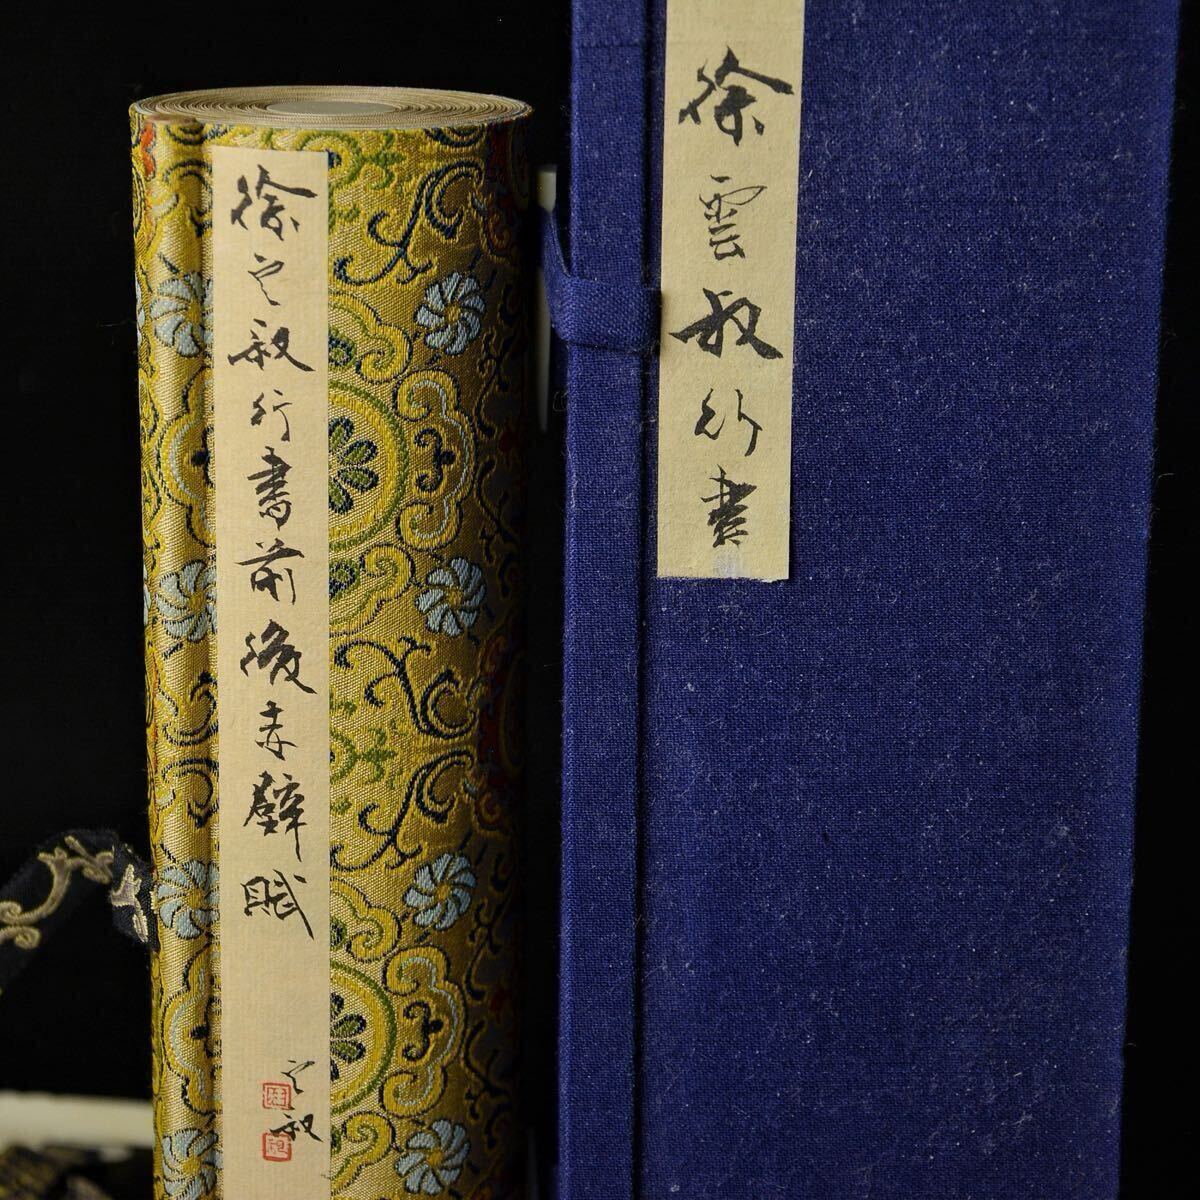 徐雲叔行書
徐云叔行書前後赤壁賦
云叔